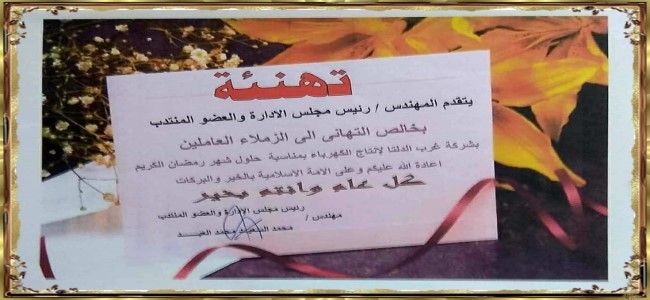 تهنئة
يتقدم المهندس / رئيس مجلس الادارة والعضو المنتدب
بخالص التهانى الى الزملاء العاملين
بشركة غرب الدلتا لانتاج الكهرباء بمناسبة حلول شهر رمضان الكريم
اعادة الله عليكم وعلى الامة الاسلامية بالخير والبركات
كل عام وانتم بخير
رئيس مجلس الادارة والعضو المنتدب
مهندس /
محمد السعيد محمد العبد